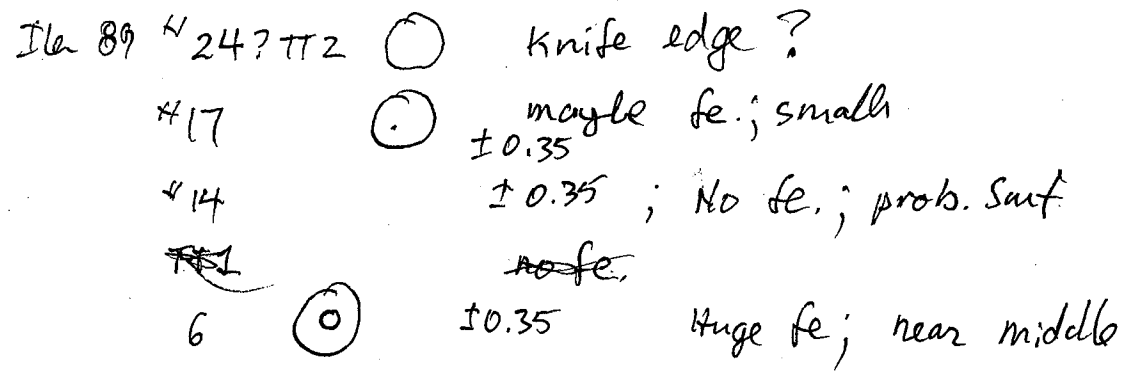 Ila 89 #24? TT2 Knife edge ?
#17 maybe fe.; small
±0.35
#14 ±0.35 ; No fe.; prob. Surf
TT1 no fe.
6 ±0.35 Huge fe; near middle